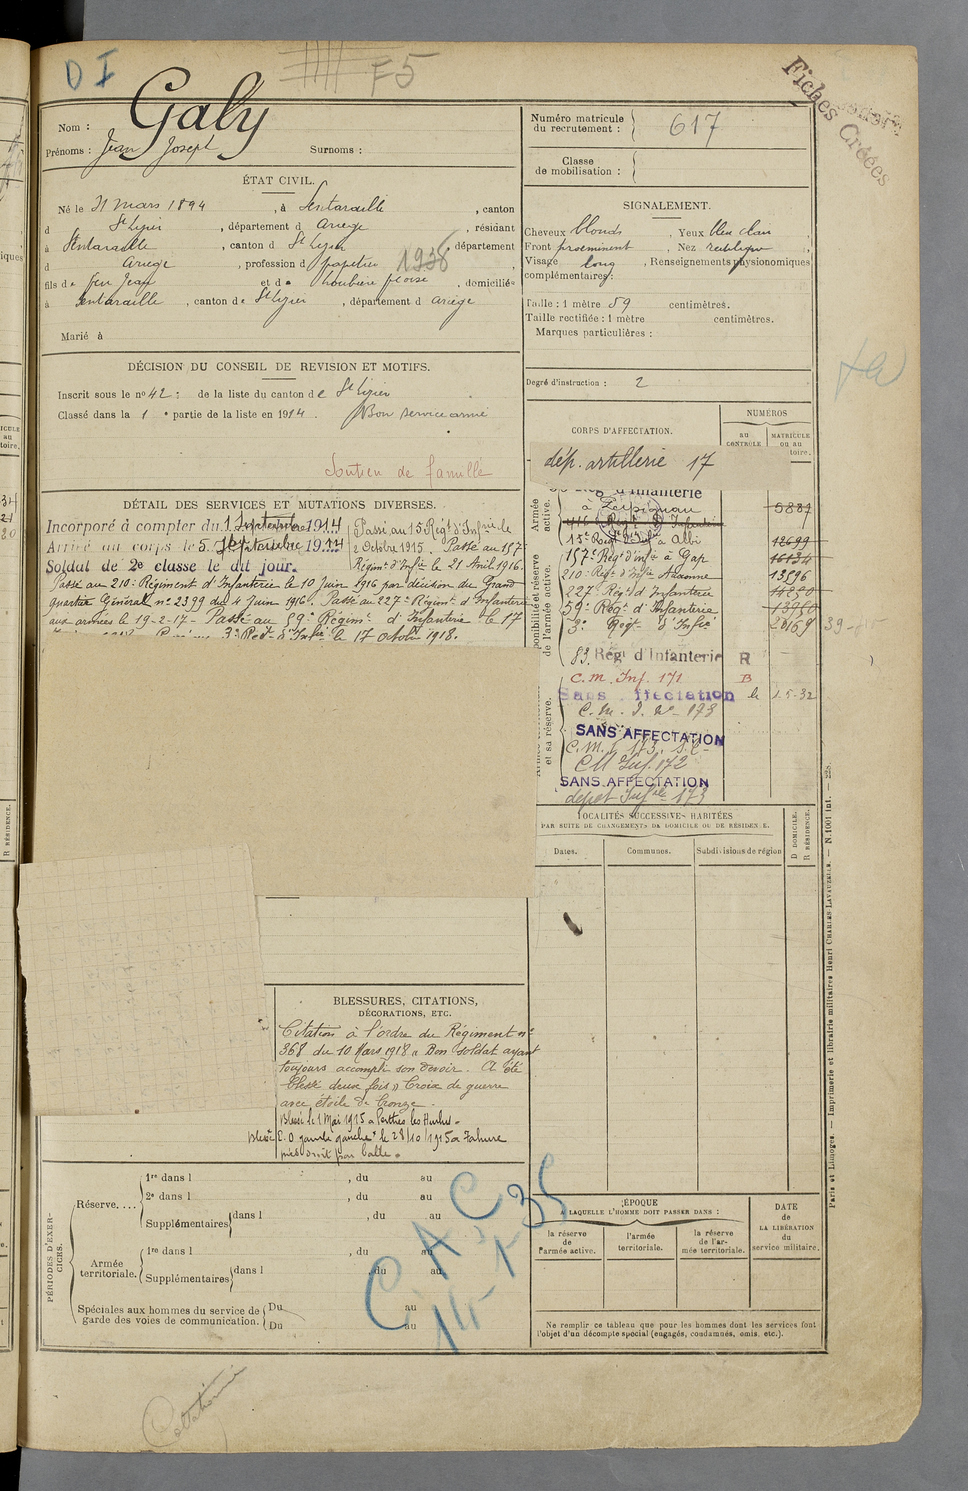 D I
F5
Fiches Créées
Nom : Galy
Prénoms : Jean Joseph Surnoms :
Numéro matricule du recrutement : 617
Classe de mobilisation :
ÉTAT CIVIL.
Né le 31 mars 1894, à Sentaraille, canton
d St Lizier, département d Ariege, résidant
à Sentaraille, canton d St Lizier, département
d Ariege, profession d papetier 1938
fils de feu Jean et de , domicilié
à Sentaraille, canton de St Lizier, département d Ariége
Marié à
SIGNALEMENT.
Cheveux blonds, Yeux bleu clair,
Front proeminent, Nez rectiligne,
Visage long, Renseignements physionomiques
complémentaires :
Taille : 1 mètre 59 centimètres.
Taille rectifiée : 1 mètre centimètres.
Marques particulières :
Degré d'instruction : 2
DÉCISION DU CONSEIL DE REVISION ET MOTIFS.
Inscrit sous le no 42 ; de la liste du canton de St lizier
Classé dans la 1e partie de la liste en 1914. Bon service armé
Soutien de famille
CORPS D'AFFECTATION.
NUMÉROS
au CONTRÔLE
MATRICULE ou au
toire.
dép. artillerie 17
DÉTAIL DES SERVICES ET MUTATIONS DIVERSES.
Incorporé à compter du 1 Septembre 1914
Arrivé au corps le 5 Septembre 1914
Soldat de 2e classe le dit jour.
Passé au 15 Regt d'Infrie le
2 Octobre 1915. Passé au 157e
Régimt d'Infie le 21 Avril 1916.
Passé au 210e Régiment d'Infanterie le 10 Juin 1916 par décision du Grand
quartier Général no 2399 du 4 Juin 1916. Passé au 227e Régimt d'Infanterie
aux armées le 19-2-17 - Passé au 59e Régimt d'Infanterie le 17
3e Regt d'Infie le 17 octobre 1918.
Armée active.
Rég d'Infanterie
à Perpignan 5887
15e Regt d'Infie à Albi 12699
157e Régt d'infie à Gap 16134
210e Regt d'Infie Auxonne 13596
227e Regt d'Infanterie
59e Regt d'Infanterie 13950
3e Regt d'Infie 39
83 Régt d'Infanterie R
C. m. Inf. 171 B
Sans affectation le 1-5-32
C. M. I. No 173
SANS AFFECTATION
C. M. I 173. S.C-
CM Inf. 172
SANS AFFECTATION
dépôt Infrie 173
LOCALITÉS SUCCESSIVES HABITÉES
PAR SUITE DE CHANGEMENTS DE DOMICILE OU DE RÉSIDENCE.
Dates. Communes. Subdivisions de région D DOMICILE. R RÉSIDENCE.
BLESSURES, CITATIONS,
DÉCORATIONS, ETC.
Citation à l'ordre du Régiment no
368 du 10 Mars 1918 « Bon Soldat ayant
toujours accompli son devoir. A été
blessé deux fois » Croix de guerre
avec étoile de bronze.
Blessé le 1 Mai 1915 à Perthes les Hurlus.
Blessé E. O jambe gauche le 28/10/1915 à Tahure
pied droit par balle.
PÉRIODES D'EXERCICES.
Réserve....
1re dans l , du au
2e dans l , du au
Supplémentaires dans l , du au
Armée territoriale.
1re dans l , du au
Supplémentaires dans l , du au
Spéciales aux hommes du service de garde des voies de communication.
Du au
Du au
C A C
14-1-35
ÉPOQUE
A LAQUELLE L'HOMME DOIT PASSER DANS :
la réserve de l'armée active.
l'armée territoriale.
la réserve de l'armée territoriale.
DATE de LA LIBÉRATION du service militaire.
Ne remplir ce tableau que pour les hommes dont les services font
l'objet d'un décompte spécial (engagés, condamnés, omis, etc.).
Paris et Limoges. — Imprimerie et librairie militaires Henri CHARLES-LAVAUZELLE. — N. 1001 int. — 228.
Collationné